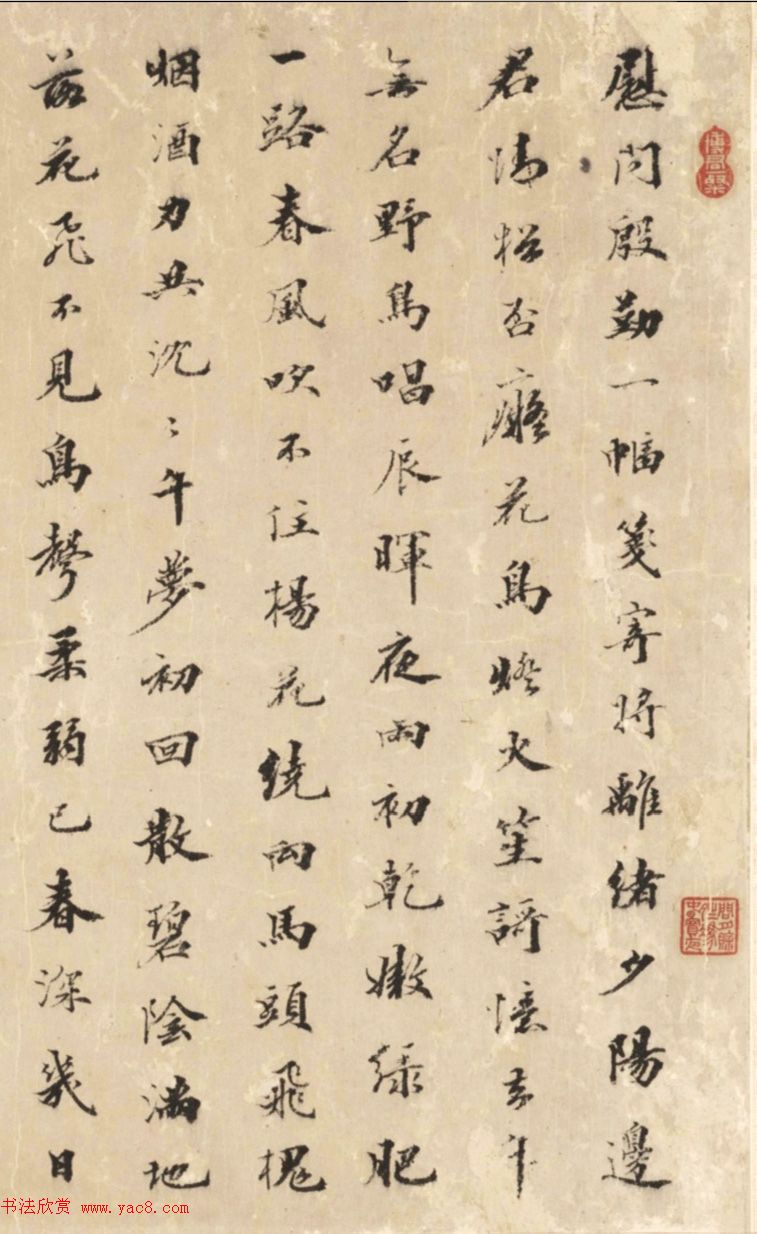 慰問殷勤一幅箋寄將離緒夕陽邊
君情否癡花鳥燈火笙謌憶去年
無名野鳥唱辰暉夜雨初乾嫩綠肥
一路春風吹不住楊花繞向馬頭飛槐
烟酒力共沈〻午夢初回散碧陰滿地
落花飛不見鳥聲柔弱已春深幾日
书法欣赏 www.yac8.com